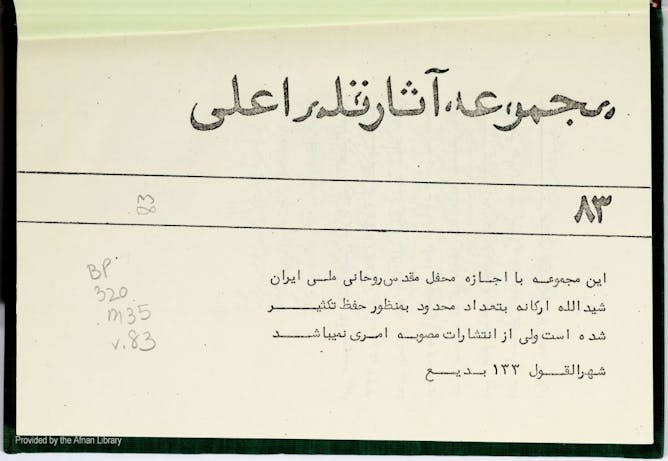 مجموعه آثار قلم اعلی
۸۳
83
این مجموعه با اجازه محفل مقدس روحانی ملی ایران
شیدالله ارکانه بتعداد محدود بمنظور حفظ تکثیر
شده است ولی از انتشارات مصوبه امری نمیباشد
شهرالقول ۱۳۳ بدیع
BP
320
m35
v.83
Provided by the Afnan Library